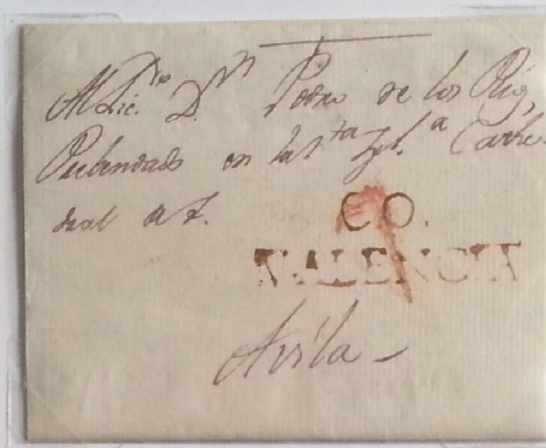 Al Lic.do D.n Pedro de los Rios,
Prebendado en la S.ta Igl.a Cathe-
dral de
CO.
VALENCIA
Avila -